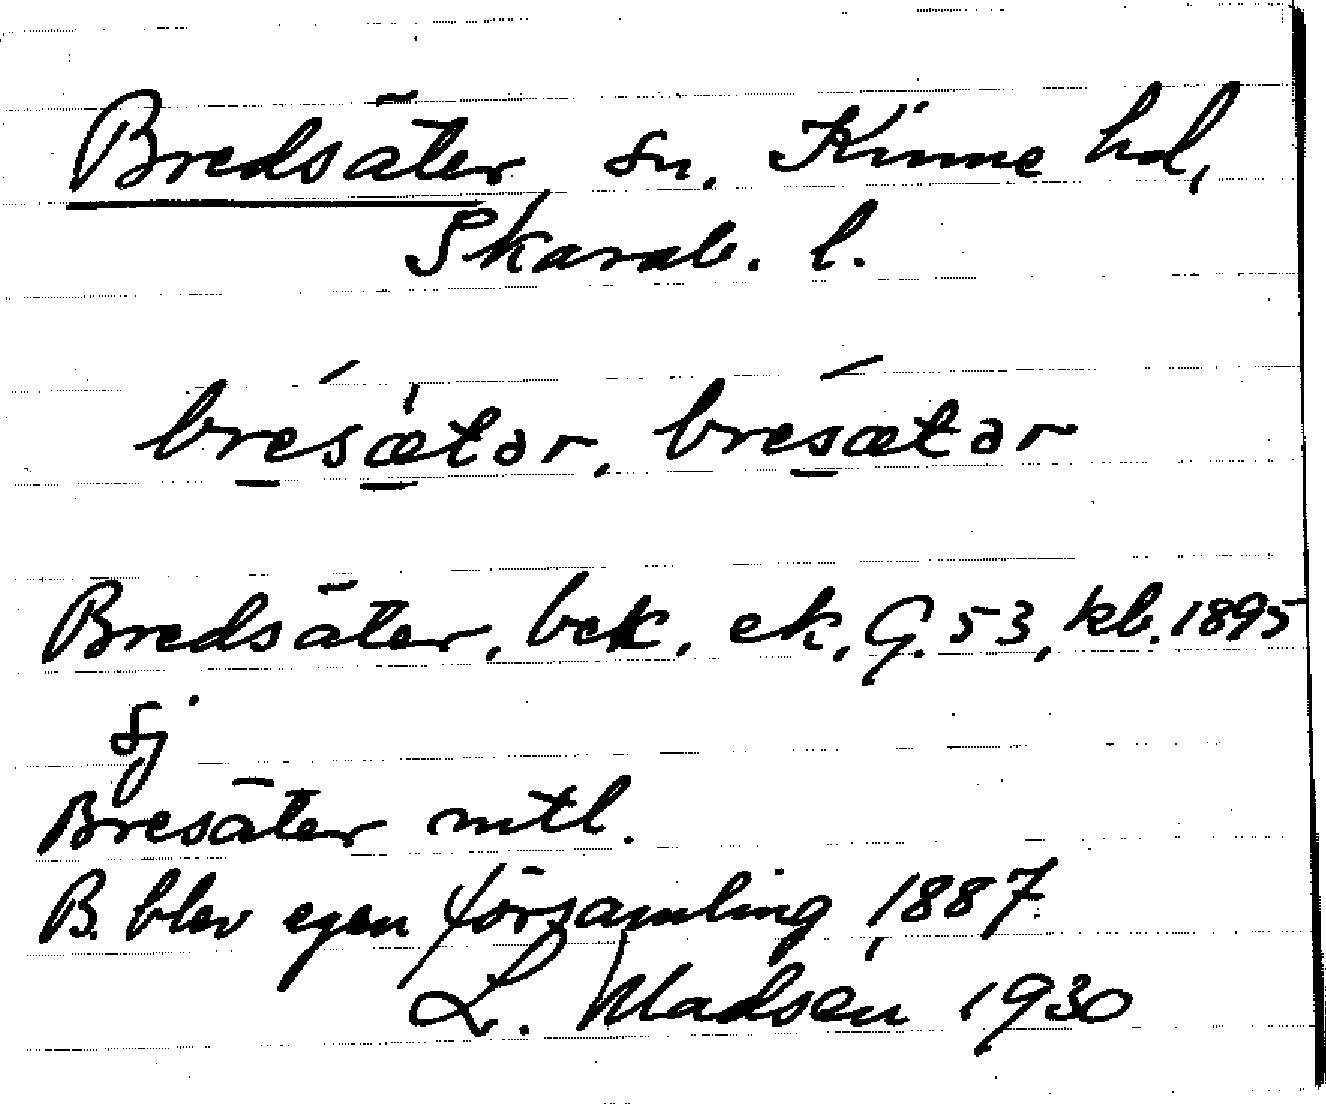 Bredsäter sn. Kinne hd,
Skarab. l.
bresætər, bresætər
Bredsäter, bek. ek. G. 53, kb. 1895
sj
Bresäter mtl.
B. blev egen församling 1887
L. Madsén 1930